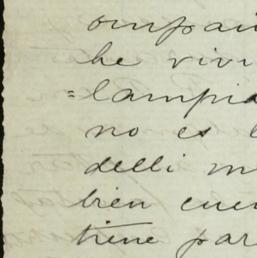 ompañ
he vivi
=lampia
no es l
delli m
bien cuen
tiene par